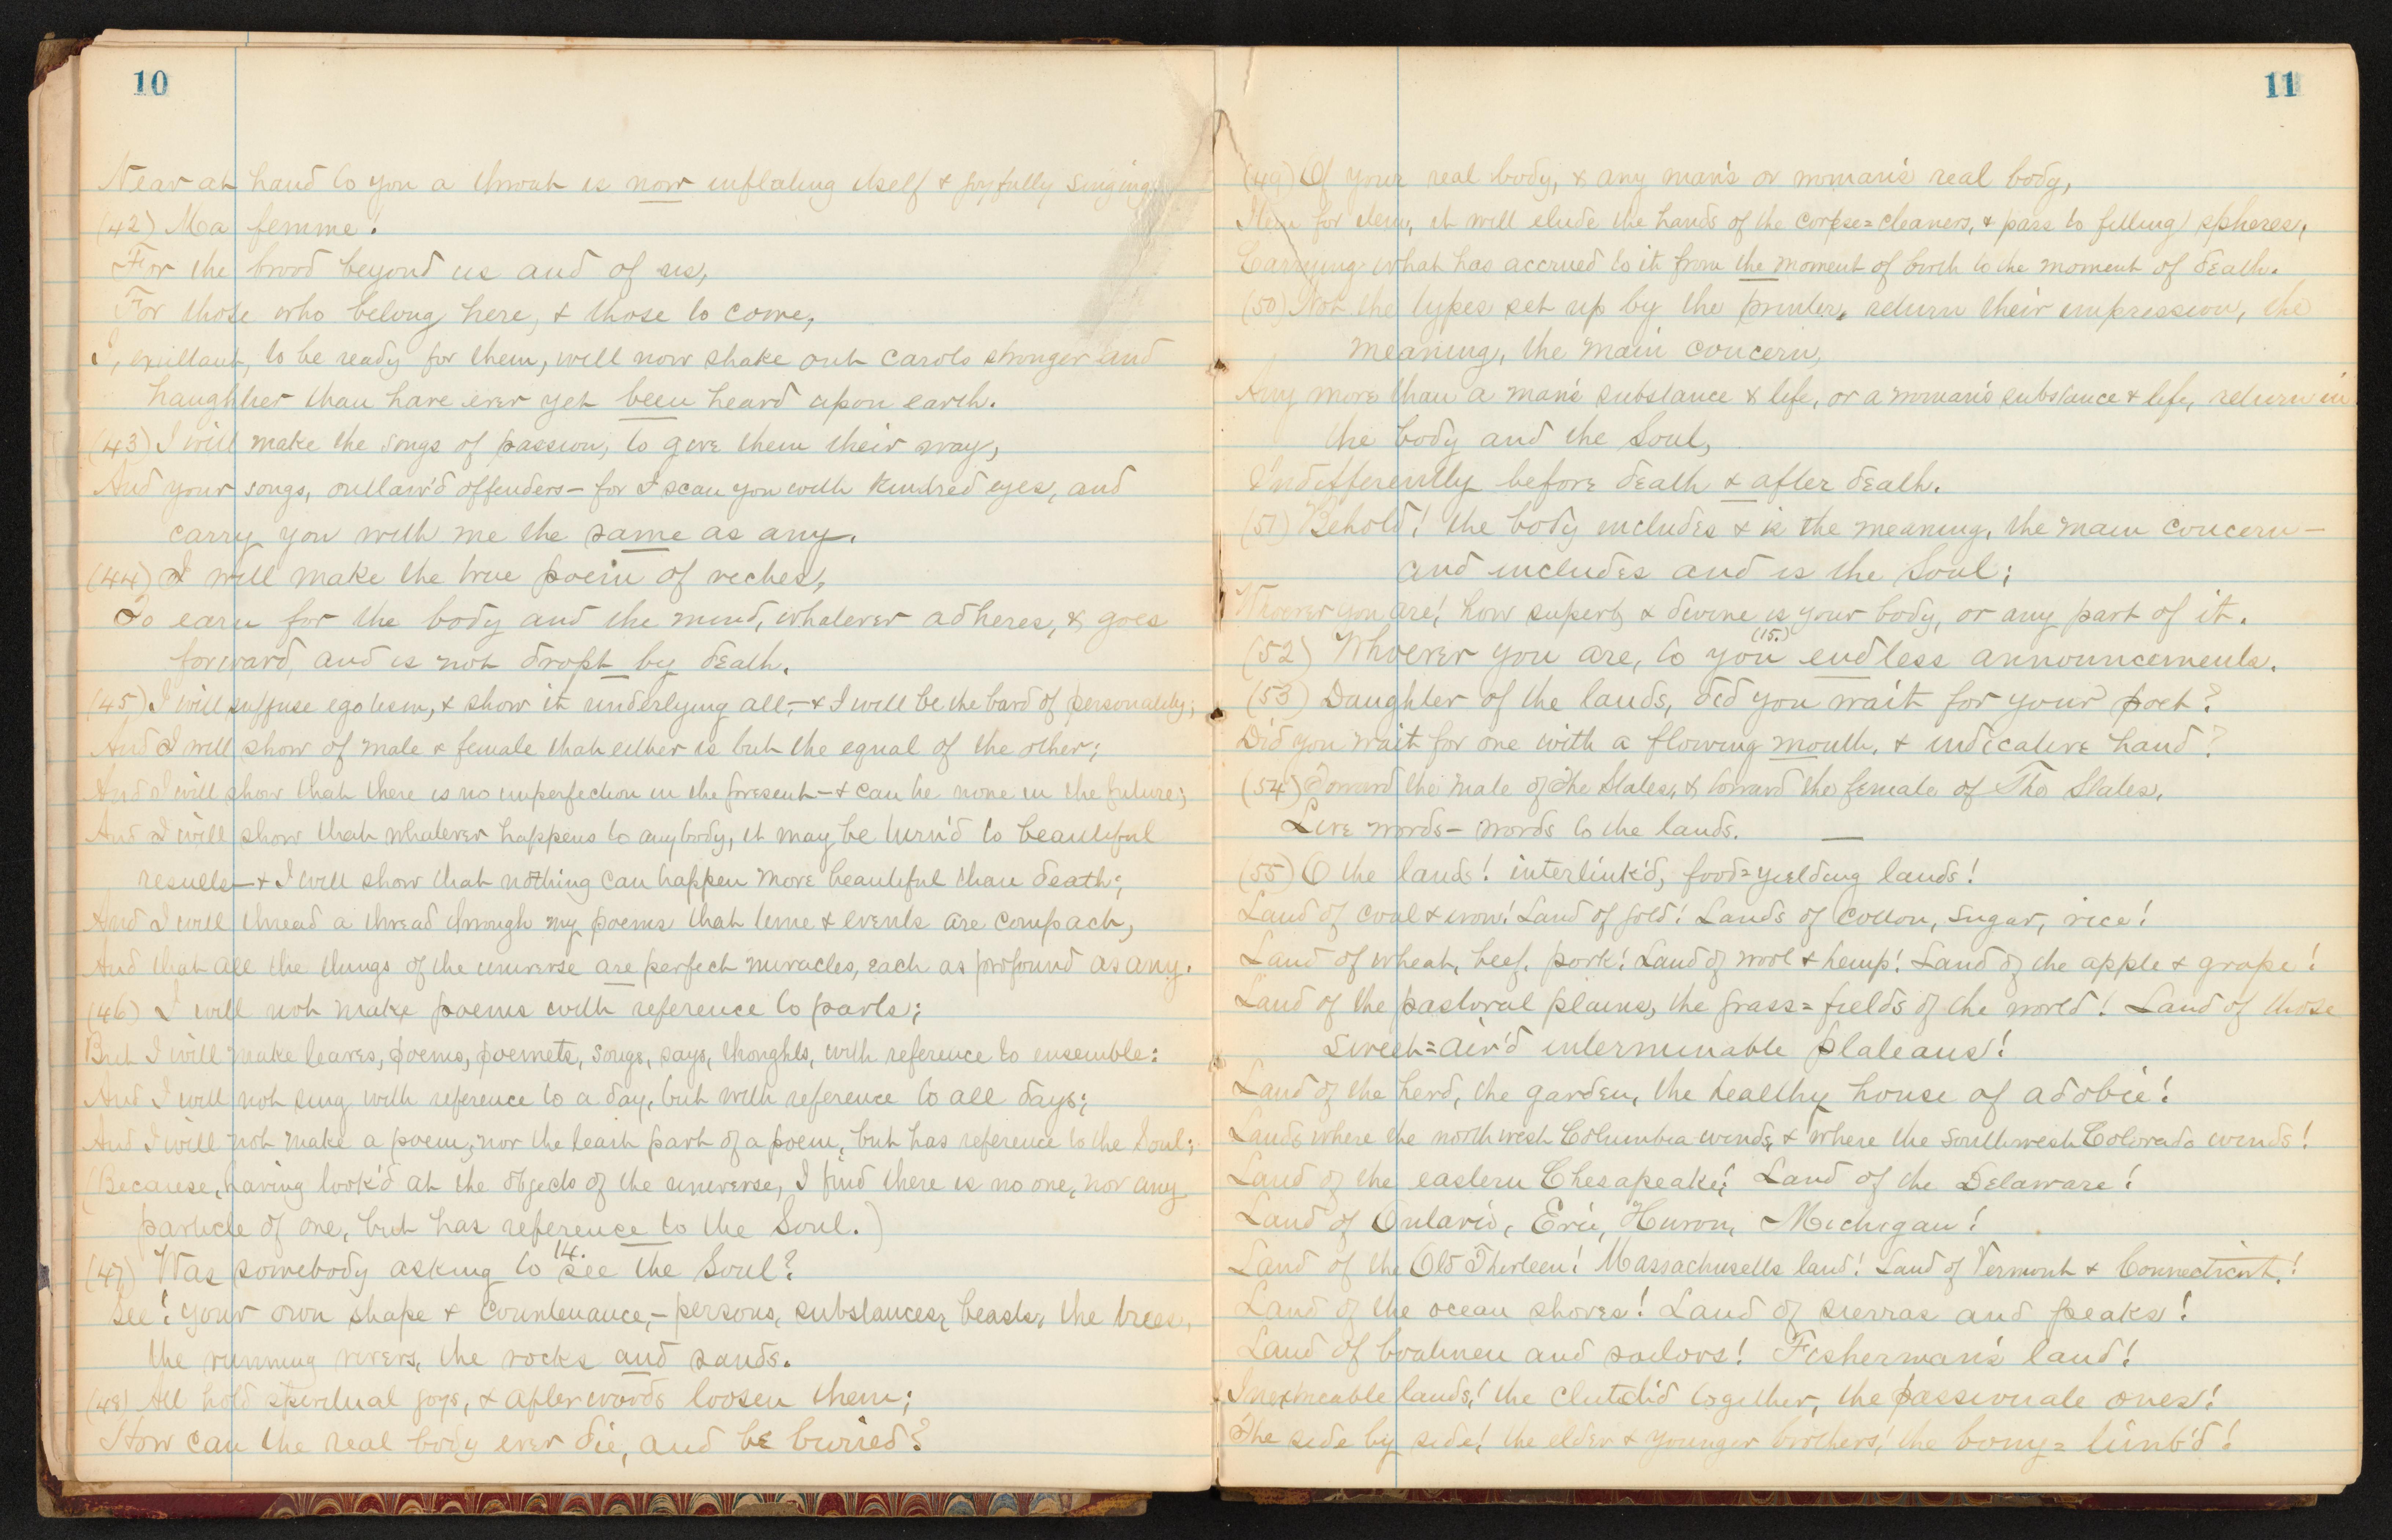 10
Near at hand to you a throat is now inflating itself & joyfully singing.
(42) Ma femme!
For the brood beyond us and of us,
For those who belong here, & those to come,
I, exultant, to be ready for them, will now shake out carols stronger and
haughtier than have ever yet been heard upon earth.
(43) I will make the songs of passion, to give them their way,
And your songs, outlaw'd offenders – for I scan you with kindred eyes, and
carry you with me the same as any.
(44) I will make the true poem of riches,
To earn for the body and the mind, whatever adheres, & goes
forward, and is not dropt by death.
(45) I will effuse egotism, & show it underlying all, – & I will be the bard of personality;
And I will show of male & female that either is but the equal of the other;
And I will show that there is no imperfection in the present – & can be none in the future;
And I will show that whatever happens to anybody, it may be turn'd to beautiful
results – & I will show that nothing can happen more beautiful than death;
And I will thread a thread through my poems that time & events are compact,
And that all the things of the universe are perfect miracles, each as profound as any.
(46) I will not make poems with reference to parts;
But I will make leaves, poems, poemets, songs, says, thoughts, with reference to ensemble:
And I will not sing with reference to a day, but with reference to all days;
And I will not make a poem, nor the least part of a poem, but has reference to the Soul;
(Because, having look'd at the objects of the universe, I find there is no one, nor any
particle of one, but has reference to the Soul.)
14.
(47) Was somebody asking to see the Soul?
See! your own shape & countenance, – persons, substances, beasts, the trees,
the running rivers, the rocks and sands.
(48) All hold spiritual joys, & afterwards loosen them;
How can the real body ever die, and be buried?
11
(49) Of your real body, & any man's or woman's real body,
Item for item, it will elude the hands of the corpse=cleaners, & pass to fitting spheres,
Carrying what has accrued to it from the moment of birth to the moment of death.
(50) Not the types set up by the printer, return their impression, the
meaning, the main concern,
Any more than a man's substance & life, or a woman's substance & life, return in
the body and the Soul,
Indifferently before death & after death.
(51) Behold! the body includes & is the meaning, the main concern –
and includes and is the Soul;
Whoever you are! how superb & divine is your body, or any part of it.
(15.)
(52) Whoever you are, to you endless announcements.
(53) Daughter of the lands, did you wait for your poet?
Did you wait for one with a flowing mouth, & indicative hand?
(54) Toward the male of The States, & toward the female of The States,
Live words – words to the lands.
(55) O the lands! interlink'd, food=yielding lands!
Land of coal & iron! Land of gold! Lands of cotton, sugar, rice!
Land of wheat, beef, pork! Land of wool & hemp! Land of the apple & grape!
Land of the pastoral plains, the grass=fields of the world! Land of those
sweet=air'd interminable plateaus!
Land of the herd, the garden, the healthy house of adobie!
Lands where the northwest Columbia winds, & where the southwest Colorado winds!
Land of the eastern Chesapeake! Land of the Delaware!
Land of Ontario, Erie, Huron, Michigan!
Land of the Old Thirteen! Massachusetts land! Land of Vermont & Connecticut!
Land of the ocean shores! Land of sierras and peaks!
Land of boatmen and sailors! Fisherman's land!
Inextricable lands! the clutch'd together, the passionate ones!
The side by side! the elder & younger brothers! the bony=limb'd!